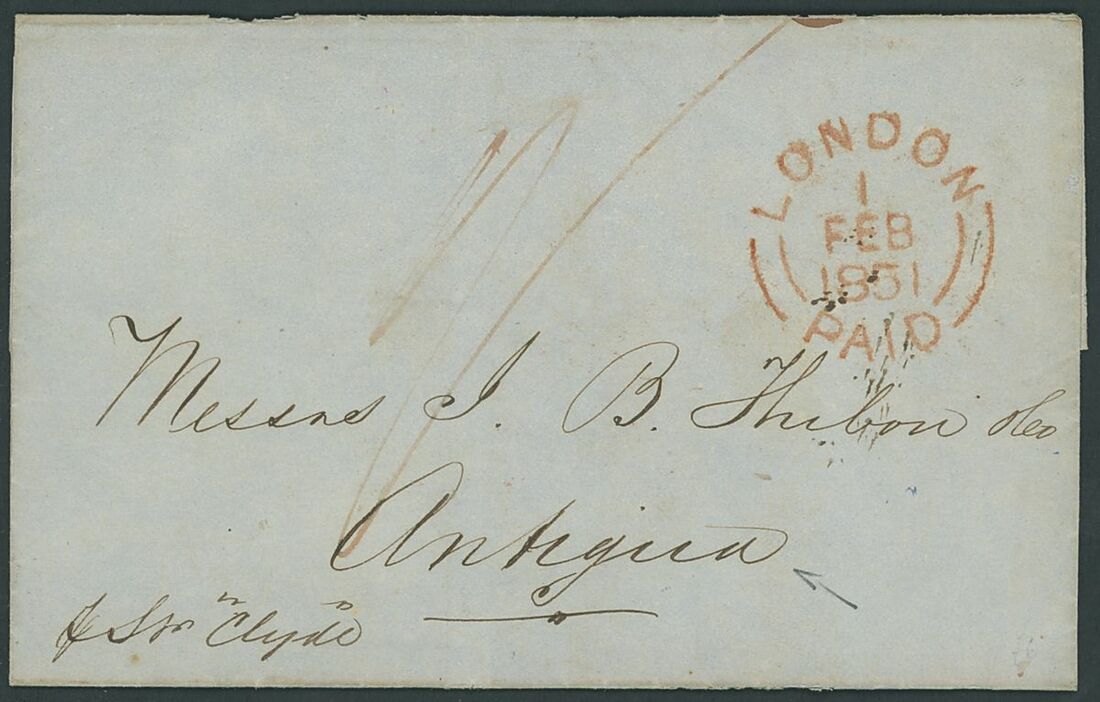 LONDON
1
FEB
1851
PAID
Messrs J. B. Thibou &Co
Antigua
"Clyde"